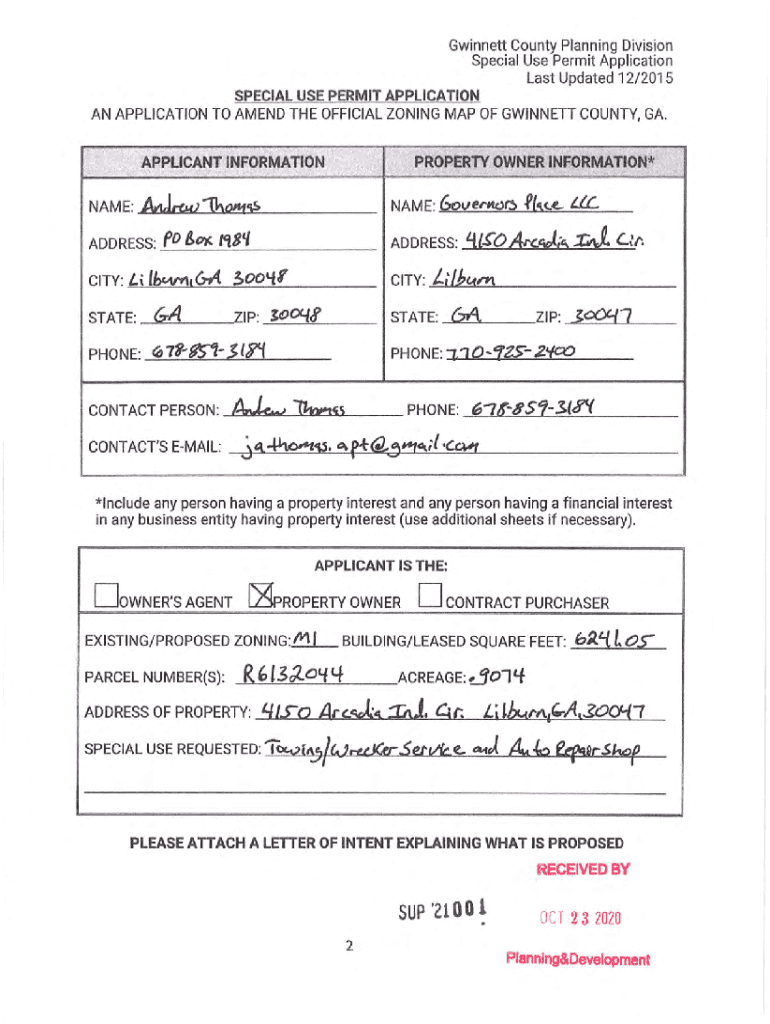 Gwinnett County Planning Division
Special Use Permit Application
Last Updated 12/2015
SPECIAL USE PERMIT APPLICATION
AN APPLICATION TO AMEND THE OFFICIAL ZONING MAP OF GWINNETT COUNTY, GA.
APPLICANT INFORMATION PROPERTY OWNER INFORMATION*
NAME: Andrew Thomas NAME: Governors Place LLC
ADDRESS: PO Box 1984 ADDRESS: 4150 Arcadia Ind. Cir.
CITY: Lilburn, GA 30048 CITY: Lilburn
STATE: GA ZIP: 30048 STATE: GA ZIP: 30047
PHONE: 678-859-3184 PHONE: 770-925-2400
CONTACT PERSON: Andrew Thomas PHONE: 678-859-3184
CONTACT'S E-MAIL: ja.thomas.apt@gmail.com
*Include any person having a property interest and any person having a financial interest
in any business entity having property interest (use additional sheets if necessary).
APPLICANT IS THE:
OWNER'S AGENT PROPERTY OWNER CONTRACT PURCHASER
EXISTING/PROPOSED ZONING: M1 BUILDING/LEASED SQUARE FEET: 6241.05
PARCEL NUMBER(S): R6132044 ACREAGE: .9074
ADDRESS OF PROPERTY: 4150 Arcadia Ind. Cir. Lilburn, GA, 30047
SPECIAL USE REQUESTED: Towing/Wrecker Service and Auto Repair Shop
PLEASE ATTACH A LETTER OF INTENT EXPLAINING WHAT IS PROPOSED
RECEIVED BY
SUP '21 001
OCT 23 2020
2
Planning&Development